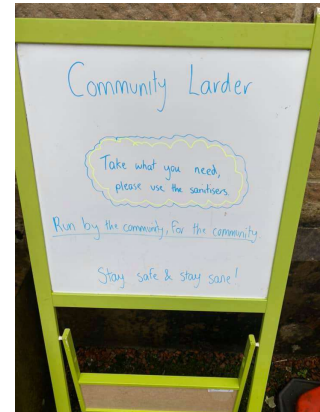 Community Larder
Take what you need,
please use the sanitisers.
Run by the community, for the community
Stay safe & stay sane!